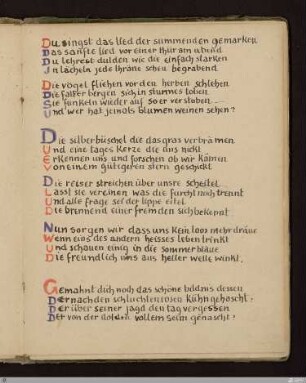 Du singst das lied der summenden gemarken
Das sanfte lied vor einer thür am abend
Du lehrest dulden wie die einfach starken
In lächeln jede thräne scheu begrabend
Die vögel fliehen vor den herben schlehen
Die falter bergen sich in sturmes toben
Sie funkeln wieder auf so er verstoben
Und wer hat jemals blumen weinen sehen?
Die silberbüschel die das gras verbrämen
Und eine tages kerze die uns nickt
Erkennen uns und forschen ob wir kämen
Von einem guten stern geschickt
Die reiser streichen über unsre scheitel
Lasst sie vereinen was die furcht noch trennt
Und alle frage sei der lippe eitel
Die brennend einer fremden sich bekennt
Nun sorgen wir dass uns kein loos mehr dräue
Wenn eins des andern heisses leben trinkt
Und schauen einig in die sommerbläue
Die freundlich uns aus heller welle winkt.
Gemahnt dich noch das schöne bildnis dessen
Der nach den schluchten-rosen kühn gehascht.
Der über seiner jagd den tag vergessen
Der von der dolden vollem seim genascht?